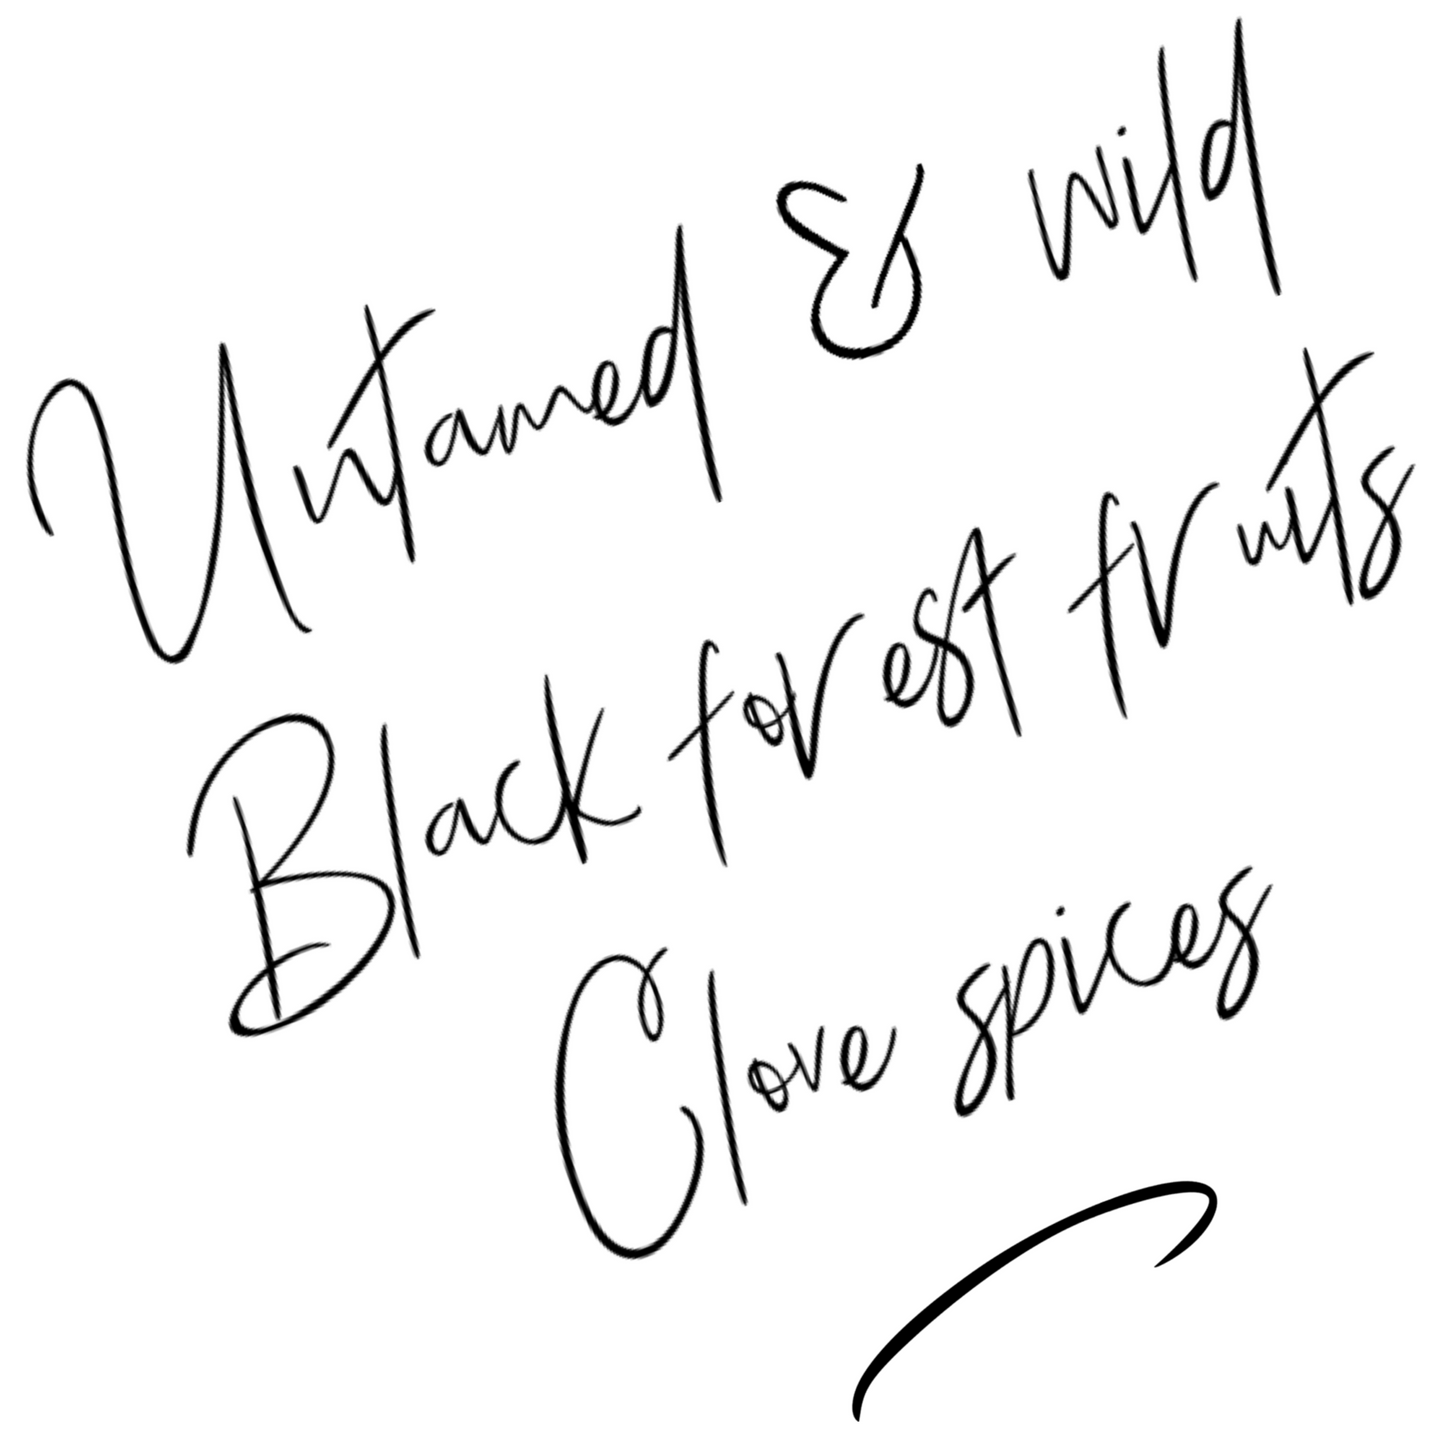 Untamed & wild
Black forest fruits
Clove spices